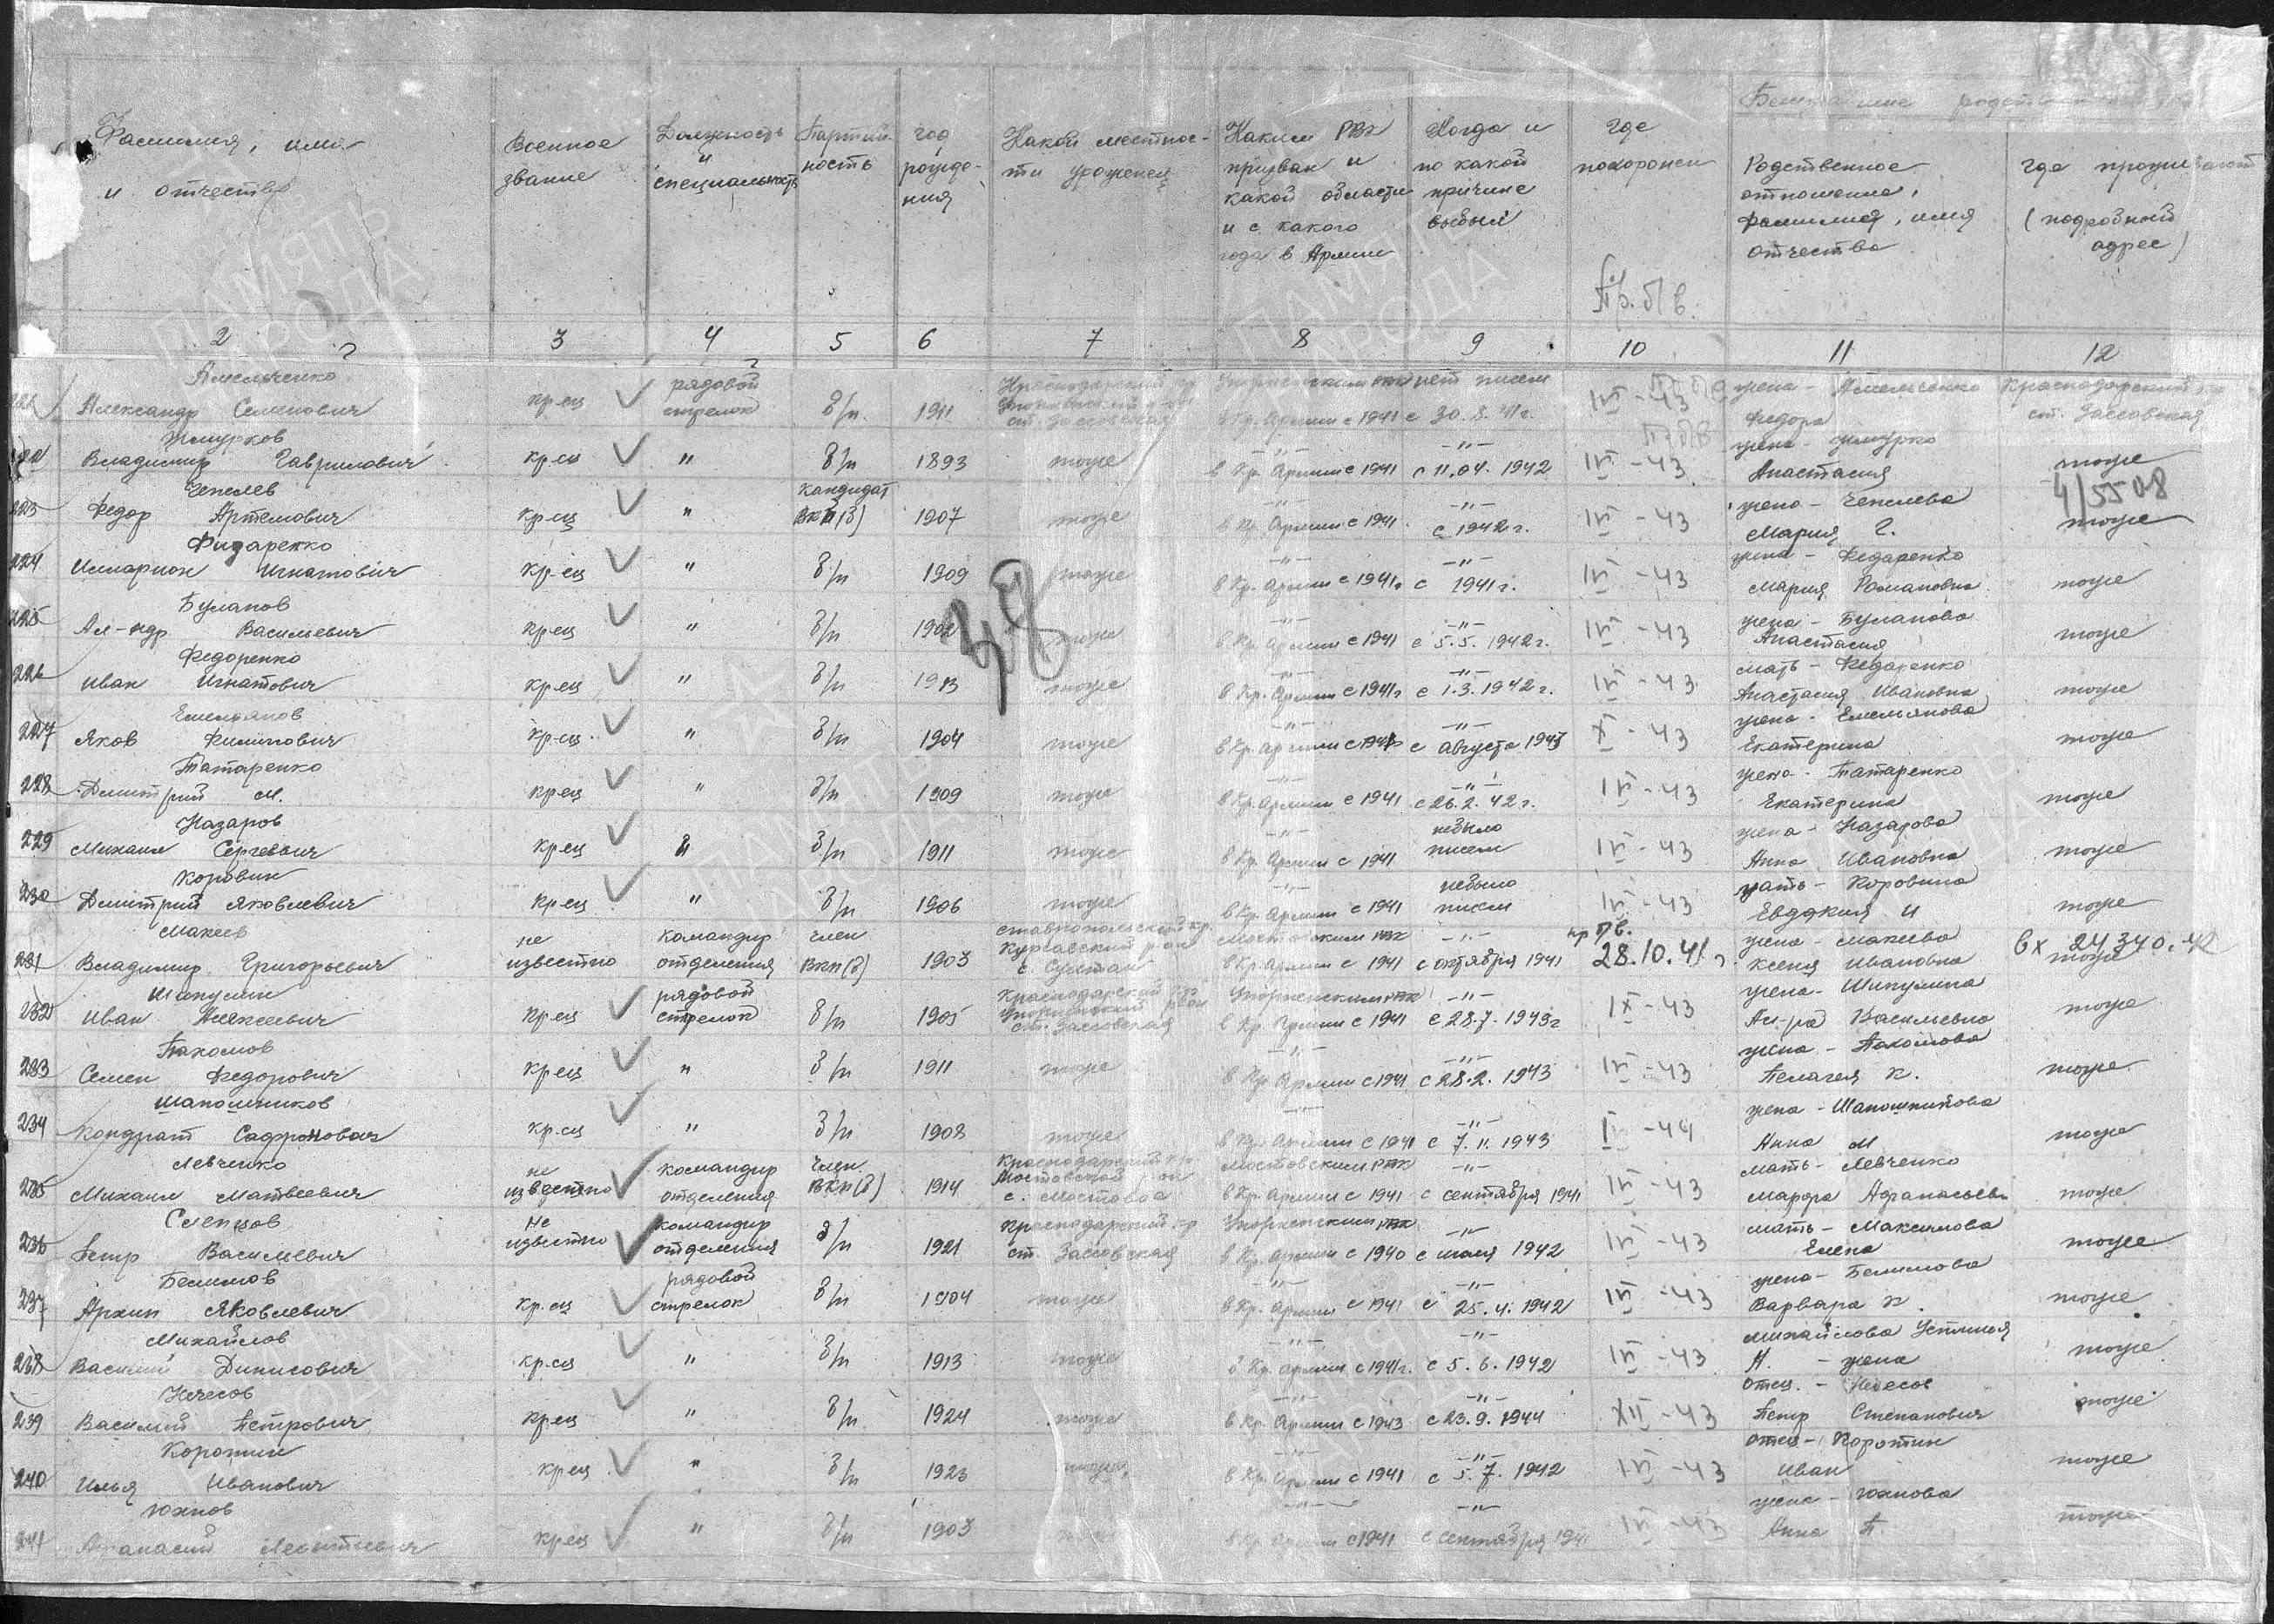 Фамилия, имя и отчество
Военное звание
Должность и специальность
Партийность
год рождения
Какой местности уроженец
Каким РВК призван и какой области и с какого года в Армии
Когда и по какой причине выбыл
где похоронен
Родственное отношение, фамилия, имя отчество
где проживают (подробный адрес)
Пр. б/в.
2 3 4 5 6 7 8 9 10 11 12
Амельченко
Александр Семенович кр-ец рядовой стрелок б/п 1911 Краснодарский ст. Зассовская РВК нет писем
в Кр. Армии с 1941 с 30.8.41г. IV-43 жена - Амельченко Федора Краснодарский ст. Зассовская
Жмурков
Владимир Гаврилович кр-ец " б/п 1893 тоже -"-
в Кр. Армии с 1941 с 11.04.1942 IV-43 жена - Жмурко Анастасия тоже
4/5508
Чепелев
223 Федор Артемович кр-ец " кандидат ВКП(б) 1907 тоже -"-
в Кр. Армии с 1941 с 1942г. IV-43 жена - Чепелева Мария Г. тоже
Фидаренко
224 Илларион Игнатович кр-ец " б/п 1909 тоже -"-
в Кр. Армии с 1941г с 1941г. IV-43 жена - Федаренко Мария Романовна тоже
Буланов
225 Ал-ндр Васильевич кр-ец " б/п 1902 тоже -"-
в Кр. Армии с 1941 с 5.5.1942г. IV-43 жена - Буланова Анастасия тоже
38
Федоренко
226 Иван Игнатович кр-ец " б/п 1913 тоже -"-
в Кр. Армии с 1941г с 1.3.1942г. IV-43 мать - Федаренко Анастасия Ивановна тоже
Емельянов
227 Яков Филипович кр-ец " б/п 1904 тоже -"-
в Кр. Армии с 1941 с августа 1943 X-43 жена - Емельянова Екатерина тоже
Татаренко
228 Дмитрий М. кр-ец " б/п 1909 тоже -"-
в Кр. Армии с 1941 с 26.2.42г. IV-43 жена - Татаренко Екатерина тоже
Назаров
229 Михаил Сергеевич кр-ец " б/п 1911 тоже -"- небыло писем
в Кр. Армии с 1941 IV-43 жена - Назарова Анна Ивановна тоже
Коровин
230 Дмитрий Яковлевич кр-ец " б/п 1906 тоже -"- небыло писем
в Кр. Армии с 1941 IV-43 мать - Коровина Евдокия И тоже
Макеев
231 Владимир Григорьевич не известно командир отделения член ВКП(б) 1903 ставропольский кр. Курсавский р-он с. Султан Мостовским РВК -"-
в Кр. Армии с 1941 с октября 1941 28.10.41г жена - Макеева Ксения Ивановна тоже
вх 24340.42
Шипулин
232 Иван Алексеевич кр-ец рядовой стрелок б/п 1905 Краснодарский ст. Зассовская РВК -"-
в Кр. Армии с 1941 с 28.7.1943г IX-43 жена - Шипулина Ал-ра Васильевна тоже
Пахомов
233 Семен Федорович кр-ец " б/п 1911 тоже -"-
в Кр. Армии с 1941 с 28.2.1943 IV-43 жена - Пахомова Пелагея К. тоже
Шапошников
234 Кондрат Сафронович кр-ец " б/п 1908 тоже -"-
в Кр. Армии с 1941 с 7.11.1943 -44 жена - Шапошникова Анна М тоже
Левченко
235 Михаил Матвеевич не известно командир отделения член ВКП(б) 1914 Краснодарский кр Мостовской р-он с. Мостовое Мостовским РВК -"-
в Кр. Армии с 1941 с сентября 1941 IV-43 мать - Левченко Марфа Афанасьев тоже
Слепцов
236 Петр Васильевич Не известно командир отделения б/п 1921 Краснодарский кр ст. Зассовская РВК -"-
в Кр. Армии с 1940 с июля 1942 IV-43 мать - Максимова Елена тоже
Белимов
237 Архип Яковлевич кр-ец рядовой стрелок б/п 1904 тоже -"-
в Кр. Армии с 1941 с 25.4.1942 IV-43 жена - Белимова Варвара К. тоже
Михайлов
238 Василий Динисович кр-ец " б/п 1913 тоже -"-
в Кр. Армии с 1941г. с 5.6.1942 IV-43 Михайлова Устинья Н. - жена тоже
Нечесов
239 Василий Петрович кр-ец " б/п 1924 тоже -"-
в Кр. Армии с 1943 с 23.9.1944 XII-43 отец - Петр Степанович тоже
Коротин
240 Илья Иванович кр-ец " б/п 1923 тоже -"-
в Кр. Армии с 1941 с 5.7.1942 IV-43 отец - Коротин Иван тоже
Юхнов
241 Афанасий Леонтьевич кр-ец " б/п 1903 -"-
в Кр. Армии с 1941 с сентября 1941 IV-43 жена - Юхнова Анна П. тоже
ПАМЯТЬ НАРОДА